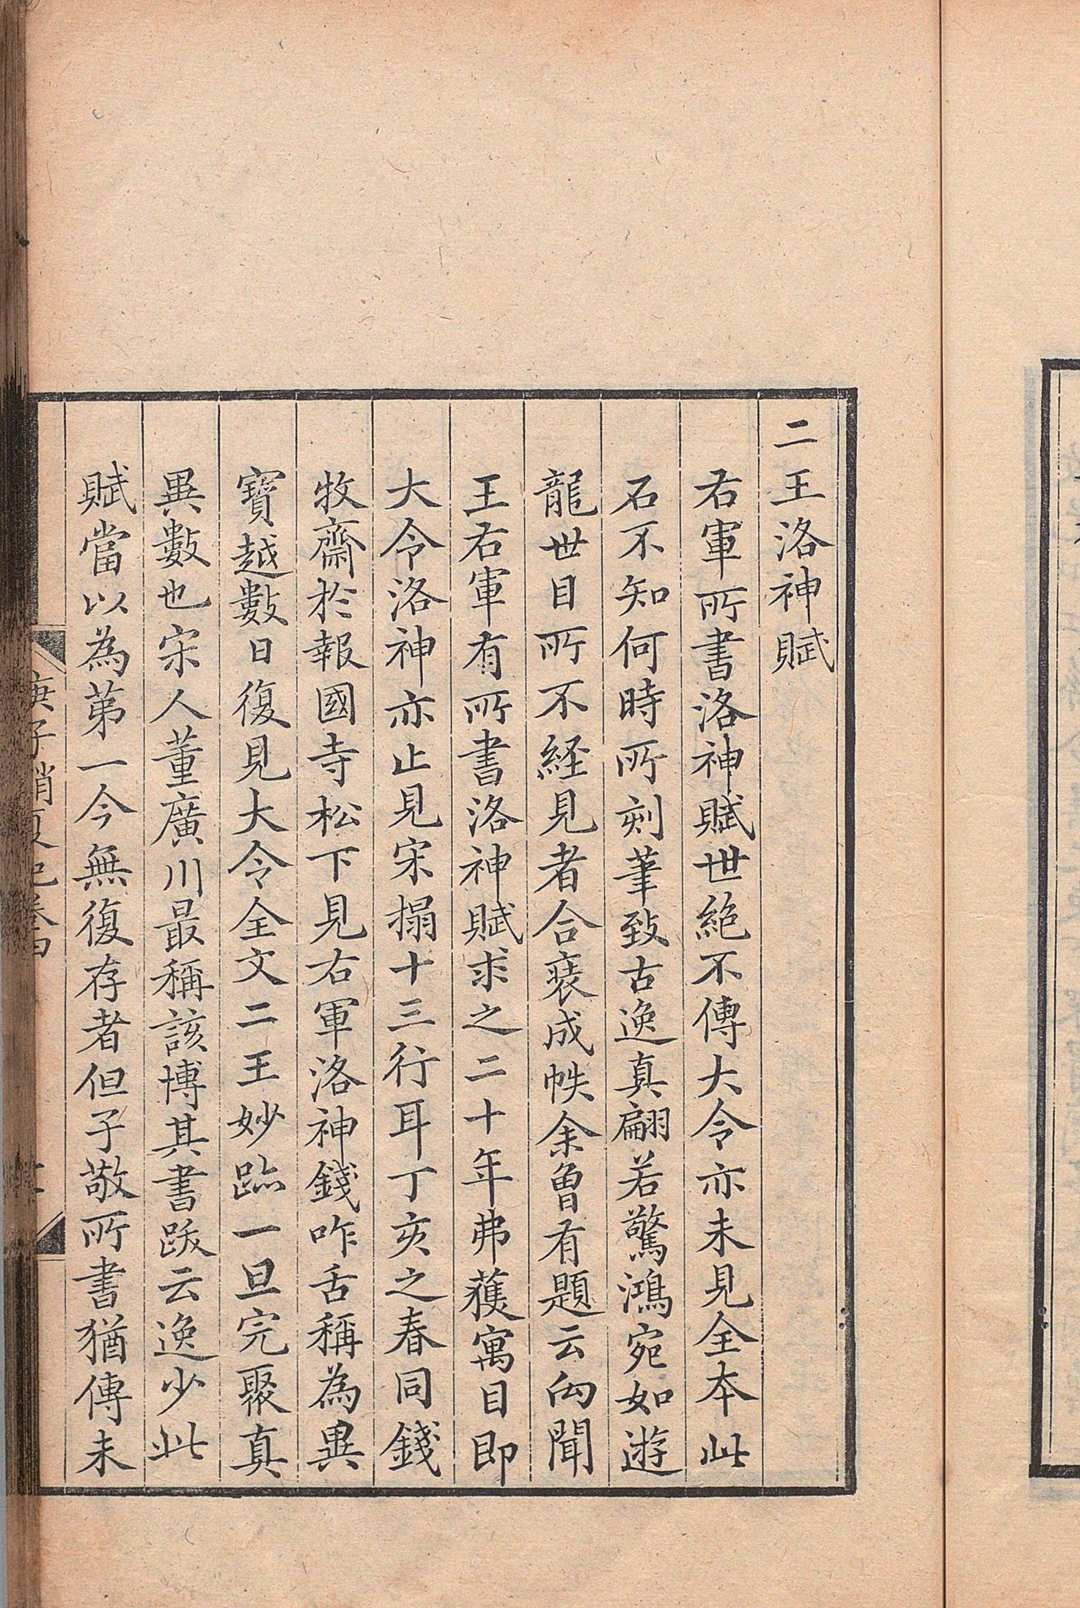 二王洛神賦
右軍所書洛神賦世絶不傳大令亦未見全本此
石不知何時所刻筆致古逸真翩若驚鴻宛如遊
龍世目所不經見者合裒成帙余曽有題云向聞
王右軍有所書洛神賦求之二十年弗獲寓目即
大令洛神亦止見宋搨十三行耳丁亥之春同錢
牧齋於報國寺松下見右軍洛神錢咋舌稱為異
寶越數日復見大令全文二王妙跡一旦完聚真
異數也宋人董廣川最稱該博其書跋云逸少此
賦當以為第一今無復存者但子敬所書猶傳未
庚子銷夏記卷四